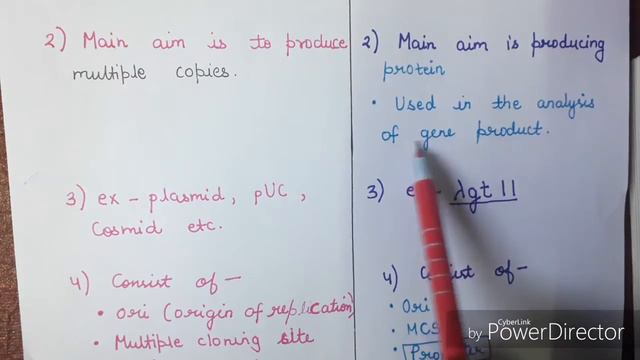 2) Main aim is to produce
multiple copies.
3) ex - plasmid, pUC,
Cosmid etc.
4) Consist of -
• Ori (origin of replication)
• Multiple cloning site
2) Main aim is producing
protein
• Used in the analysis
of gene product.
3) - λgt 11
4) of -
• Ori
• MCS
CyberLink
by PowerDirector